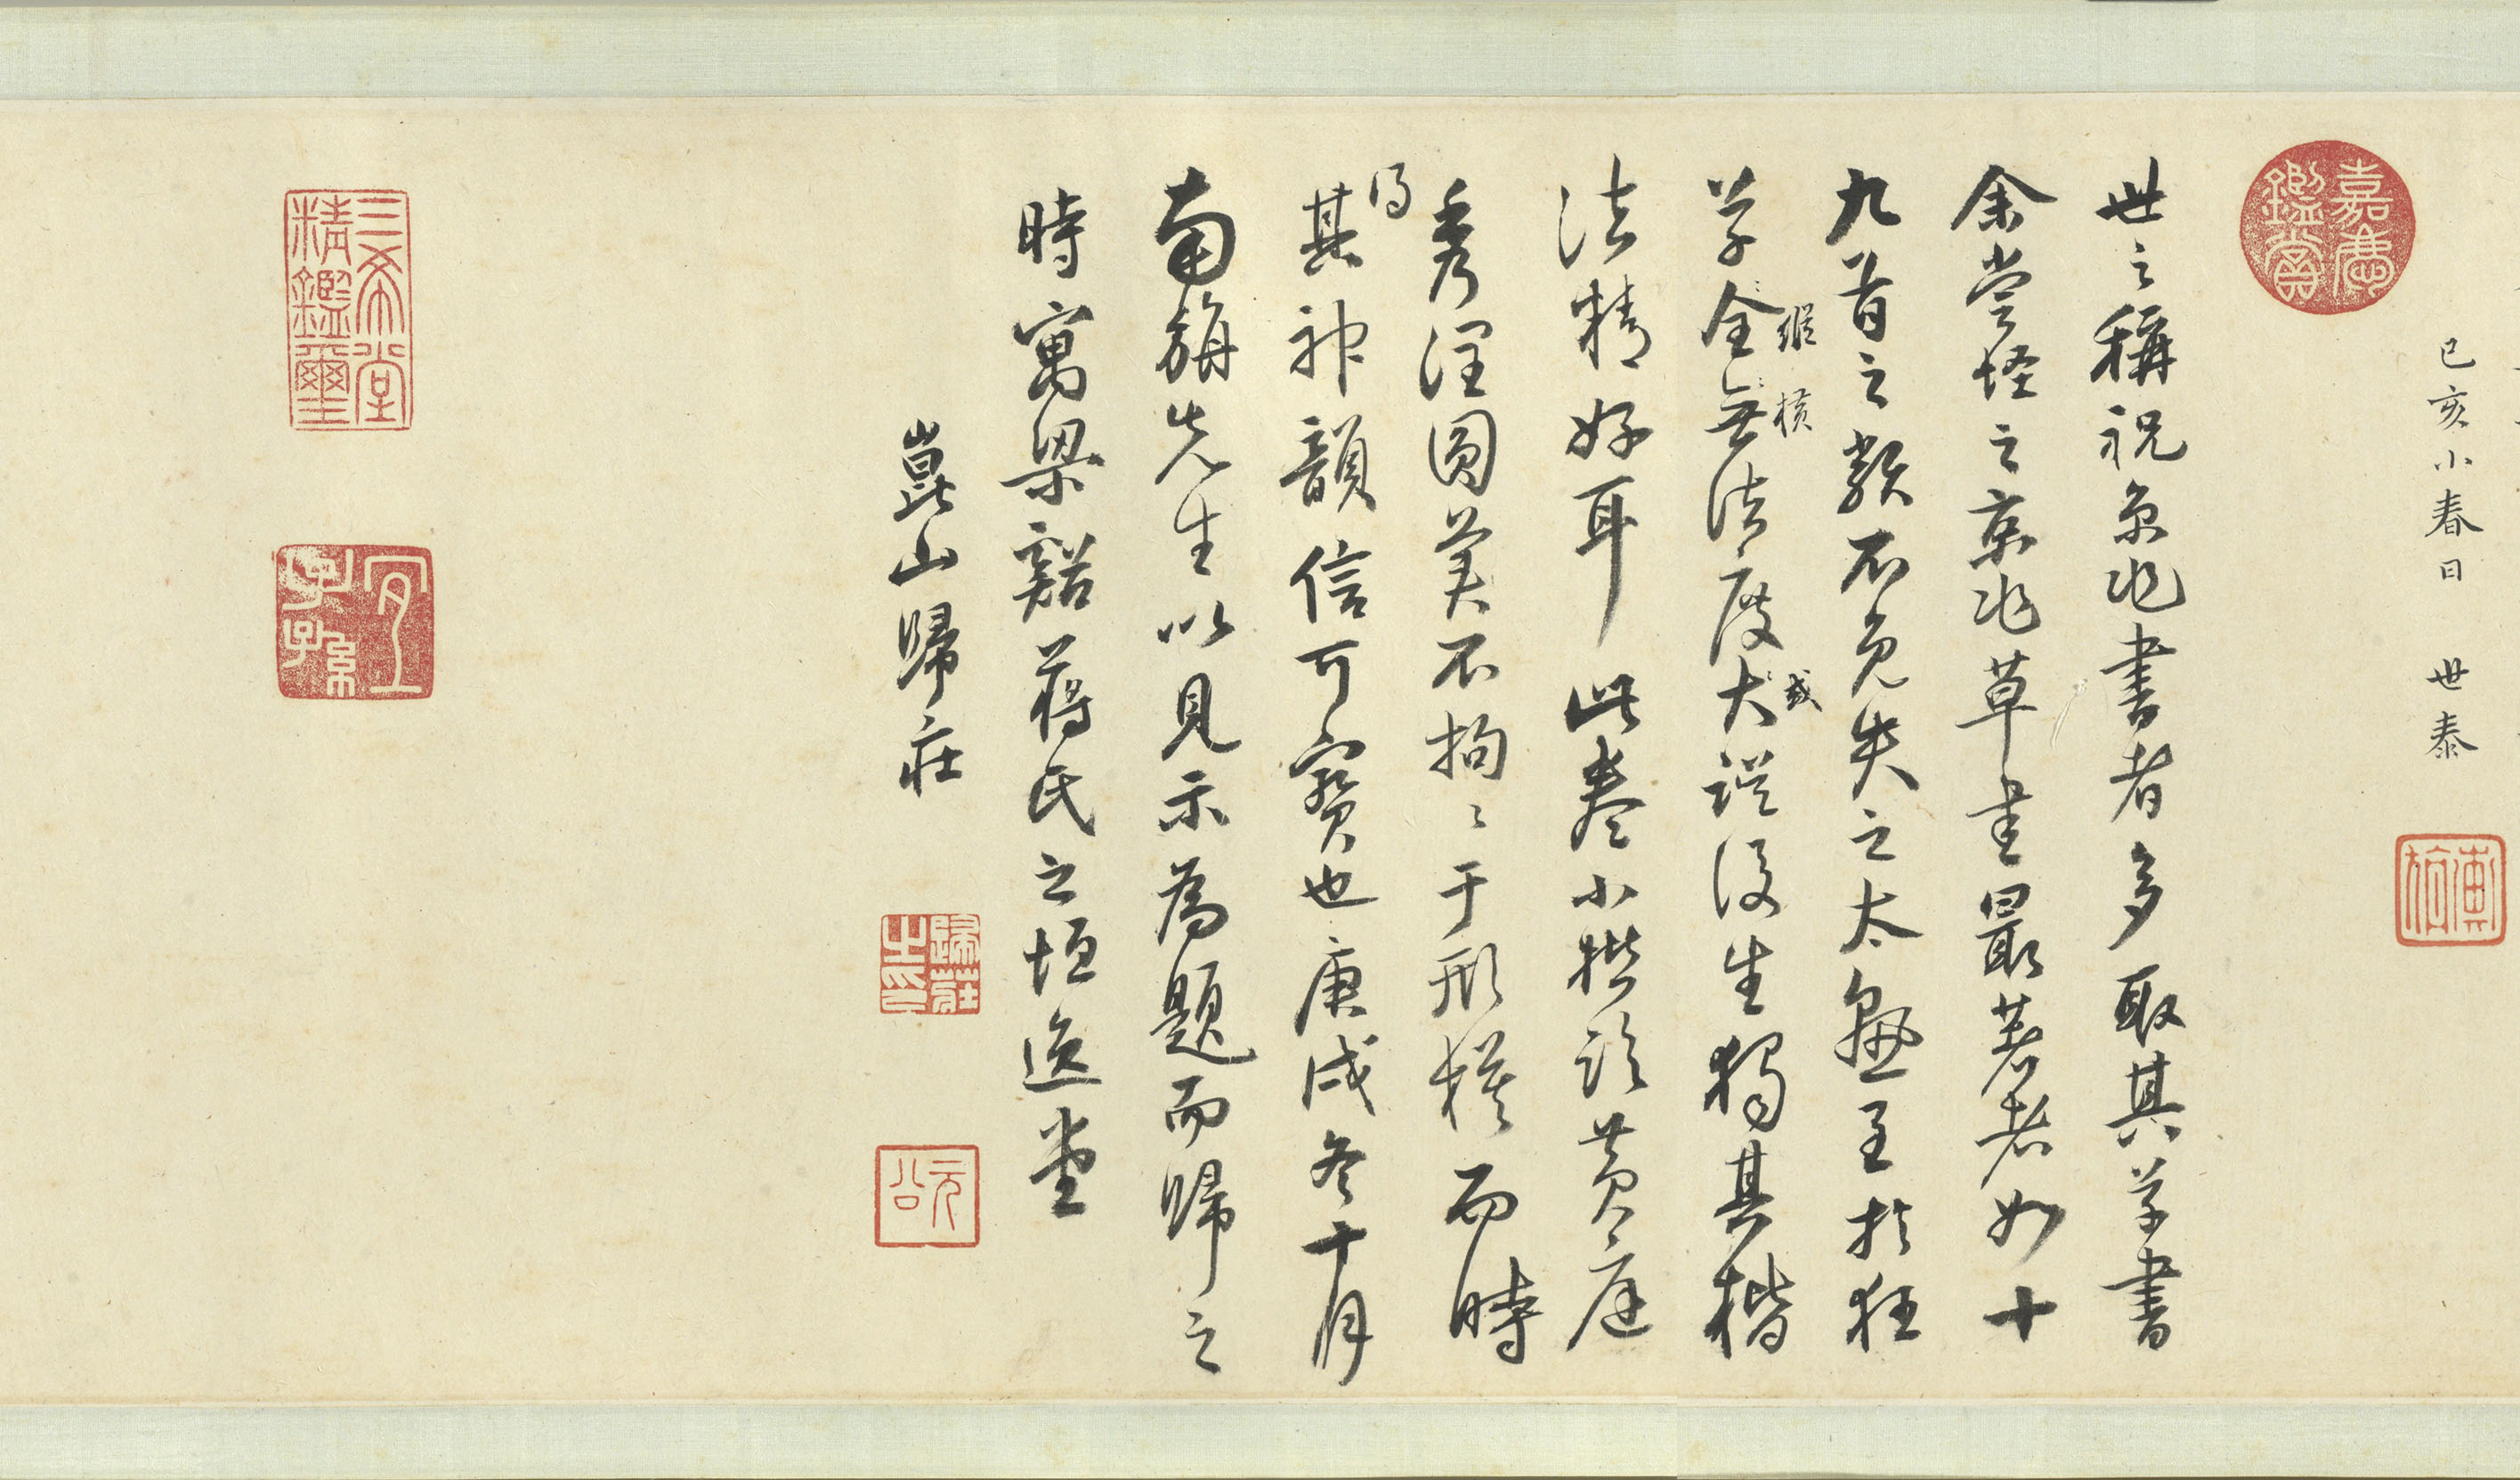 己亥小春日 世泰
嘉慶鑑賞
世之稱祝京兆書者多取其草書
余嘗怪之京兆草書最著者如十
九首之類不免失之太至於狂
草全無法度大誤後生獨其楷
縱橫 或
法精好耳此卷小楷臨黃庭
秀潤圓美不拘〻于形模而時
得
其神韻信可寶也庚戌冬十月
南旃先生以見示為題而歸之
時寓梁谿蔣氏之垣逸堂
崑山歸莊
歸莊之印
元公
三希堂精鑑璽
宜子孫